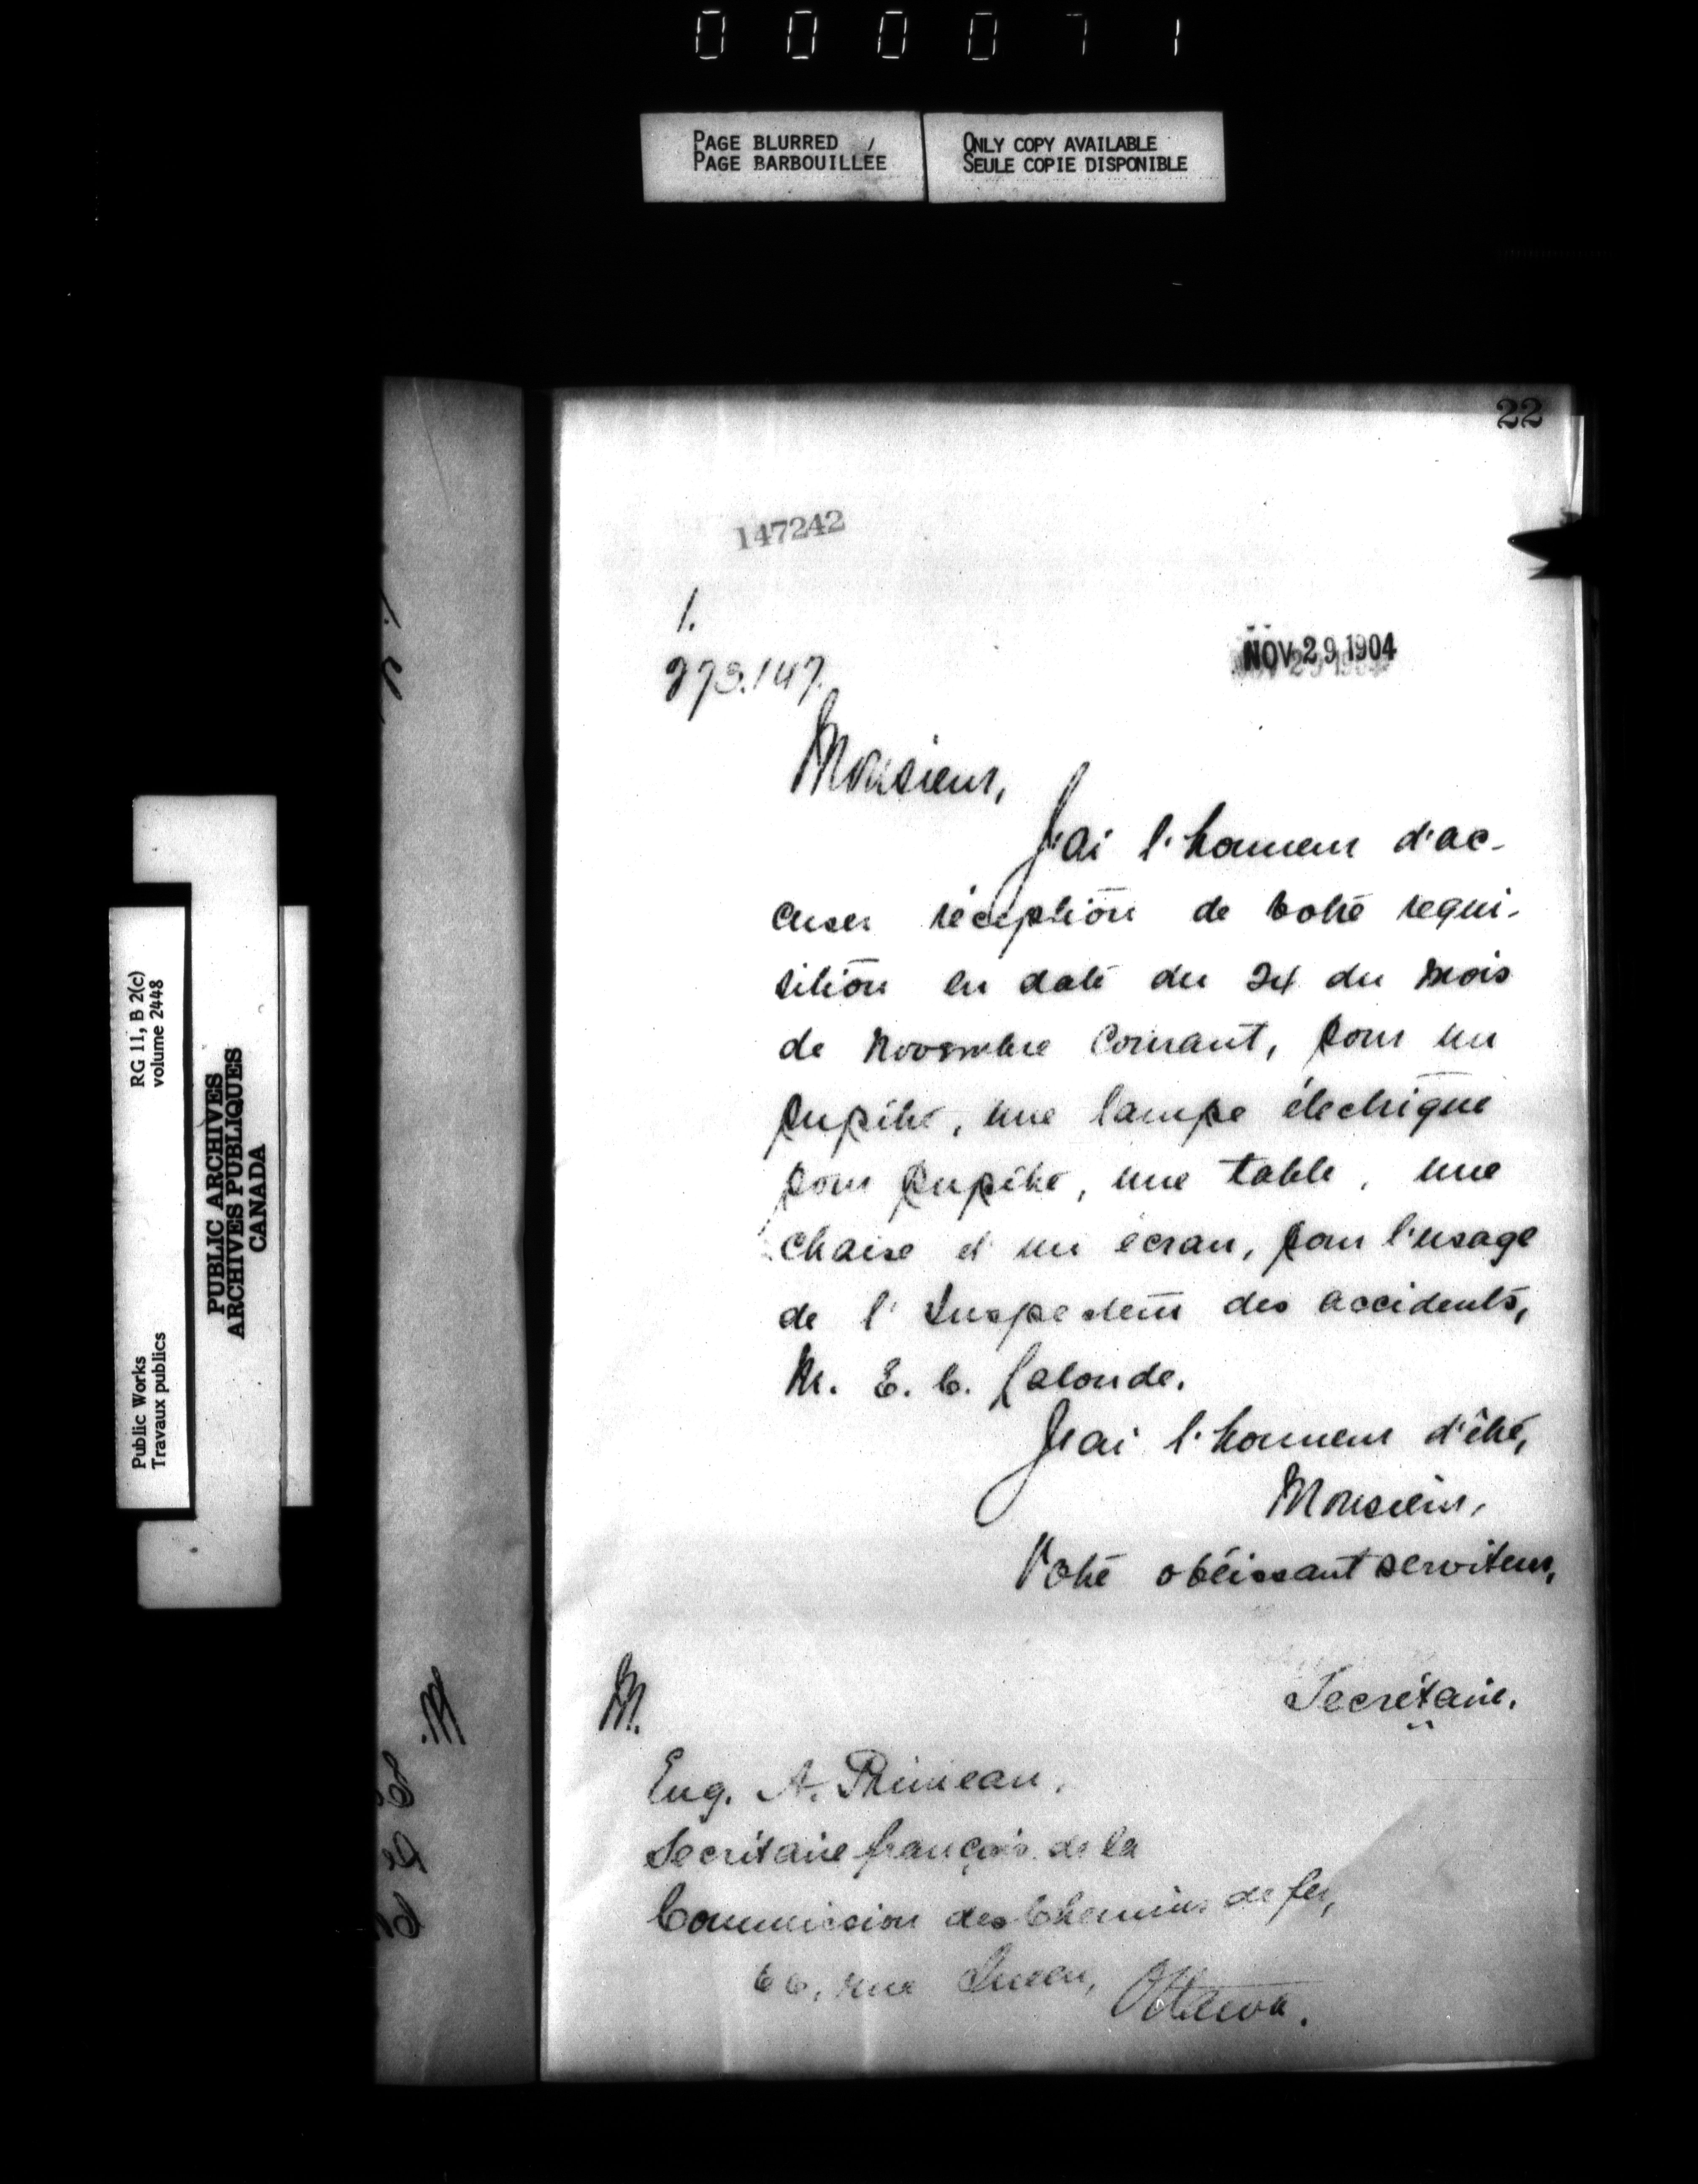 000071
PAGE BLURRED
PAGE BARBOUILLÉE
ONLY COPY AVAILABLE
SEULE COPIE DISPONIBLE
RG 11, B 2(c)
volume 2448
PUBLIC ARCHIVES
ARCHIVES PUBLIQUES
CANADA
Public Works
Travaux publics
22
147242
1.
273.147.
NOV 29 1904
Monsieur,
J'ai l'honneur d'ac-
cuser réception de votre requi-
sition en date du 24 du mois
de Novembre courant, pour un
pupitre, une lampe électrique
pour pupitre, une table, une
chaise et un écran, pour l'usage
de l'Inspecteur des accidents,
M. E. C. Lalonde.
J'ai l'honneur d'être,
Monsieur,
Votre obéissant serviteur,
Secrétaire.
M.
Eug. A. Primeau,
Secrétaire français de la
Commission des Chemins de fer,
66, rue Queen, Ottawa.